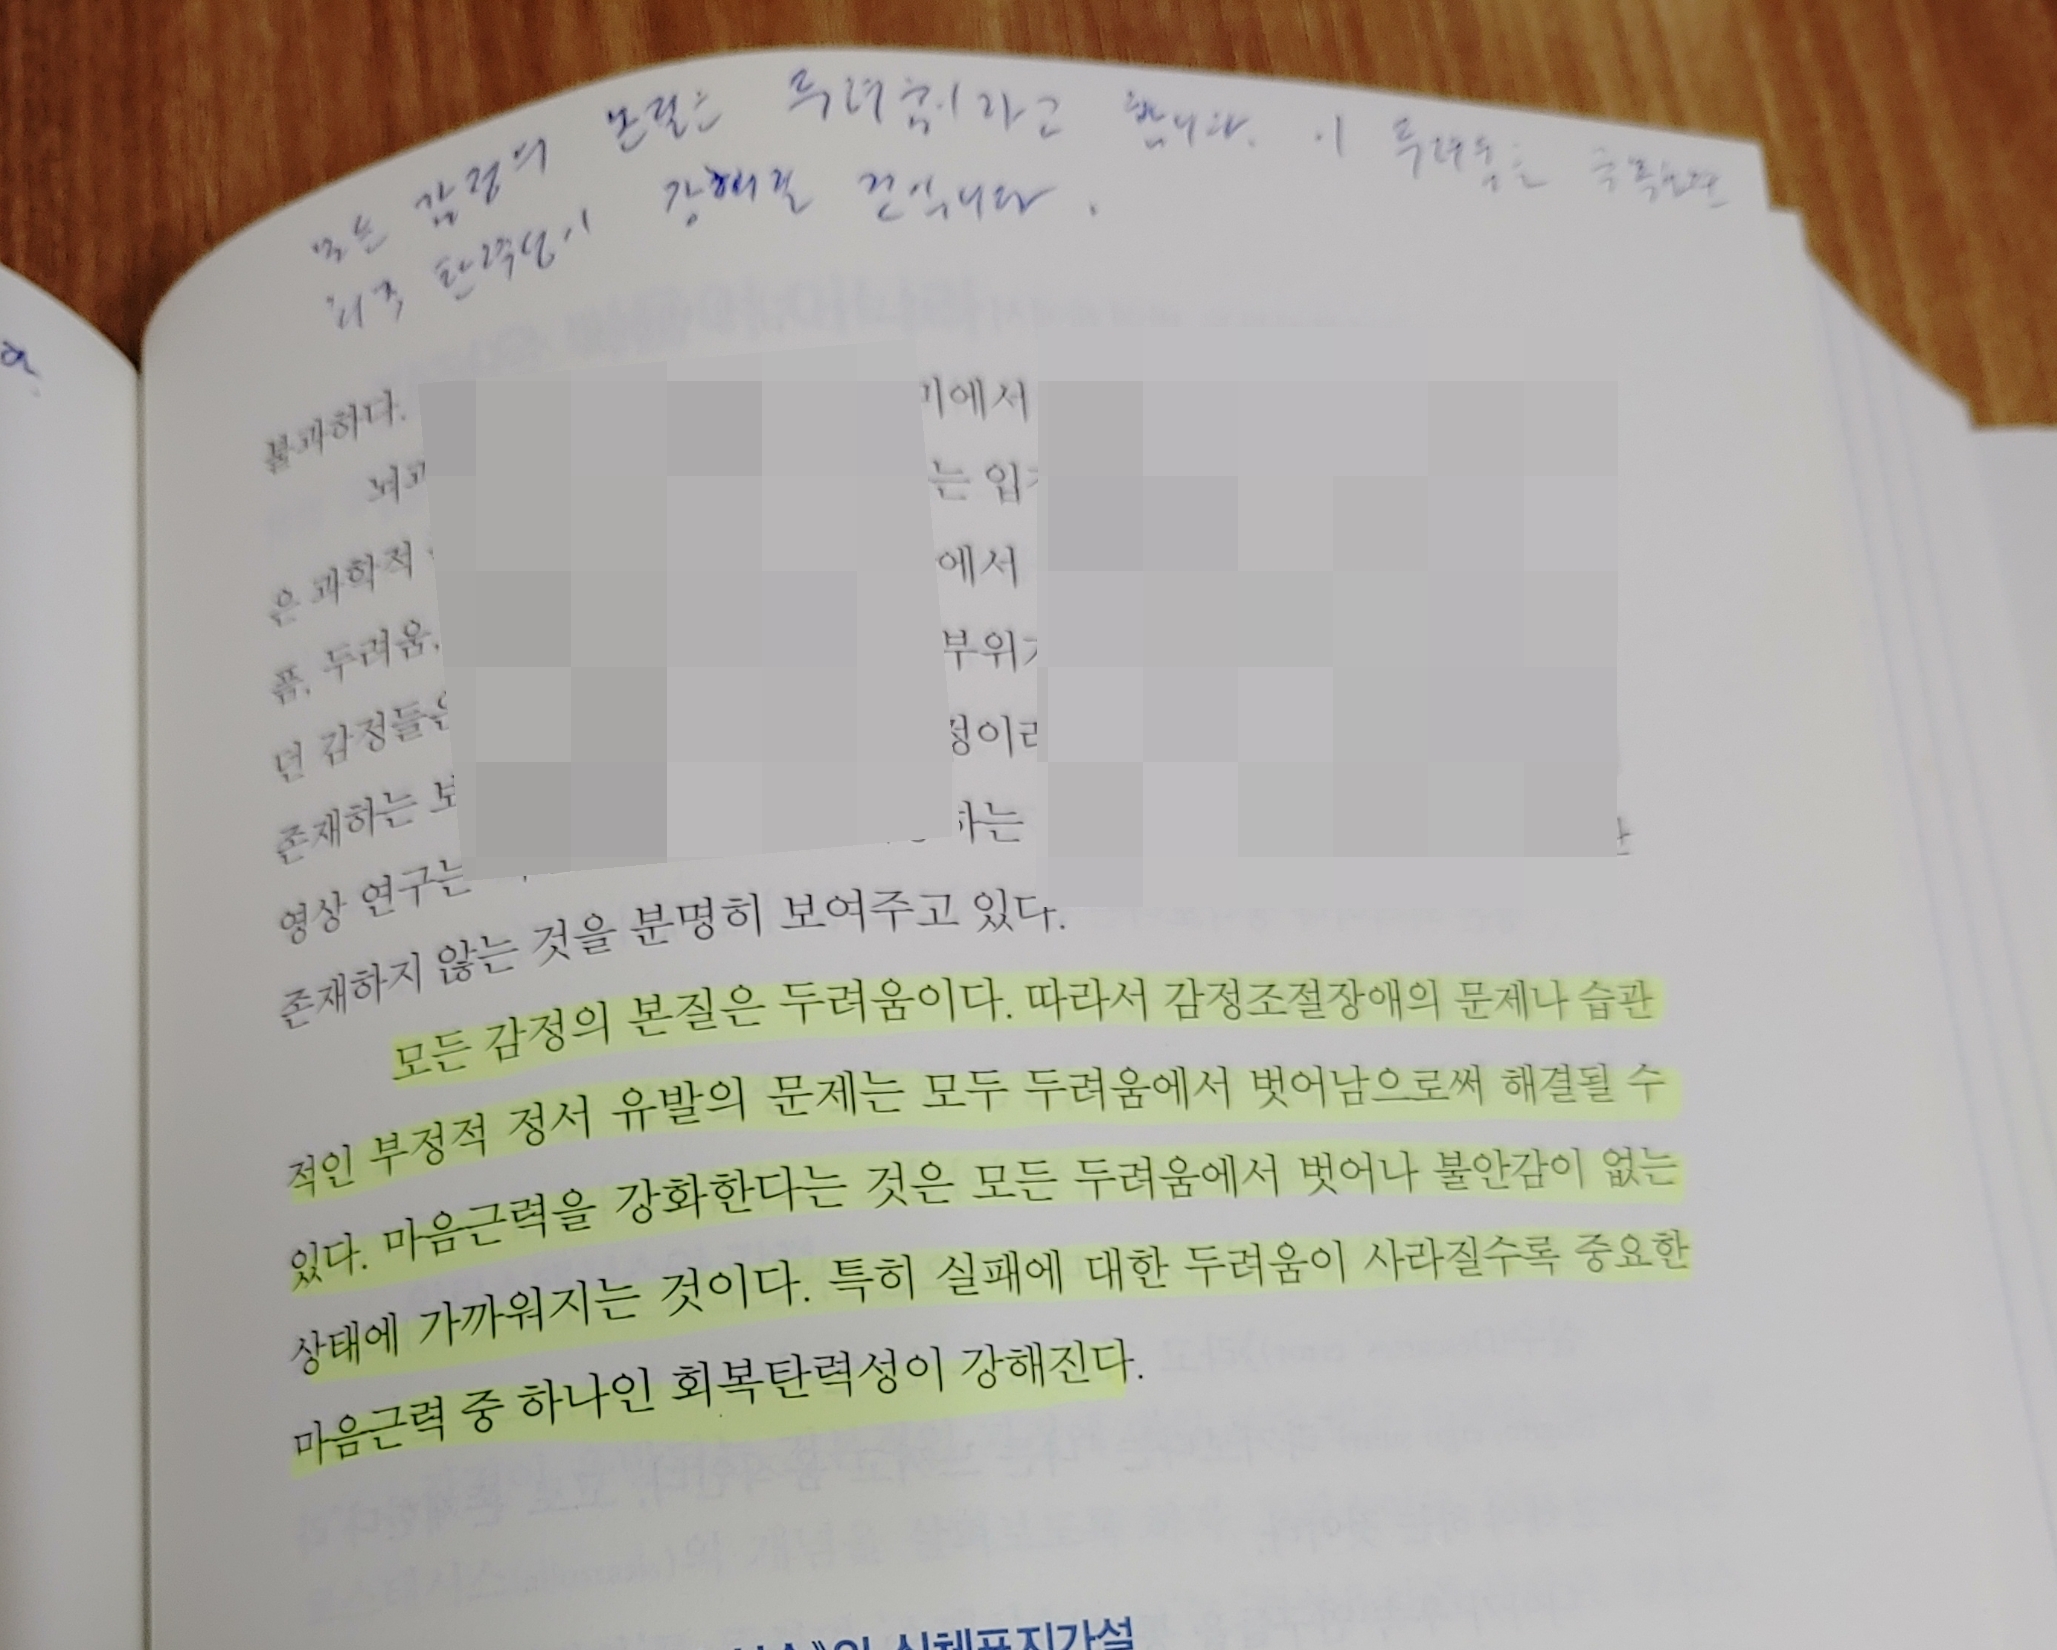 모든 감정의 본질은 두려움이라고 합니다. 이 두려움을 극복하면
회복 탄력성이 강해질 것입니다.
불과하다. 에서
는
은 과학적 에서
픔, 두려움, 부위
던 감정들은
존재하는 하는
영상 연구는
존재하지 않는 것을 분명히 보여주고 있다.
모든 감정의 본질은 두려움이다. 따라서 감정조절장애의 문제나 습관
적인 부정적 정서 유발의 문제는 모두 두려움에서 벗어남으로써 해결될 수
있다. 마음근력을 강화한다는 것은 모든 두려움에서 벗어나 불안감이 없는
상태에 가까워지는 것이다. 특히 실패에 대한 두려움이 사라질수록 중요한
마음근력 중 하나인 회복탄력성이 강해진다.
신체표지가설